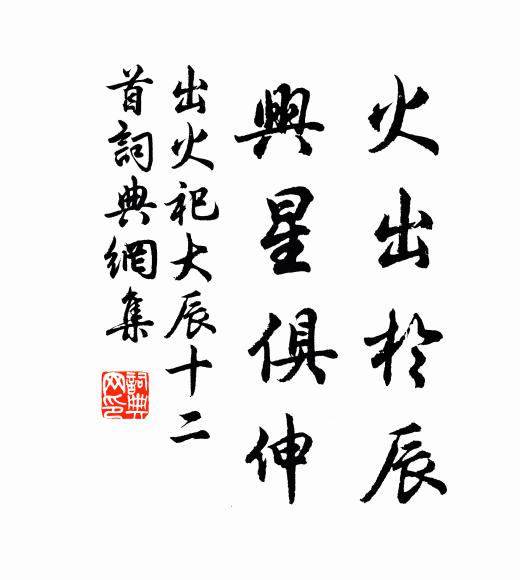 火出於辰
興星俱伸
出火祀大辰十二
首詞典網集
詞典
网印